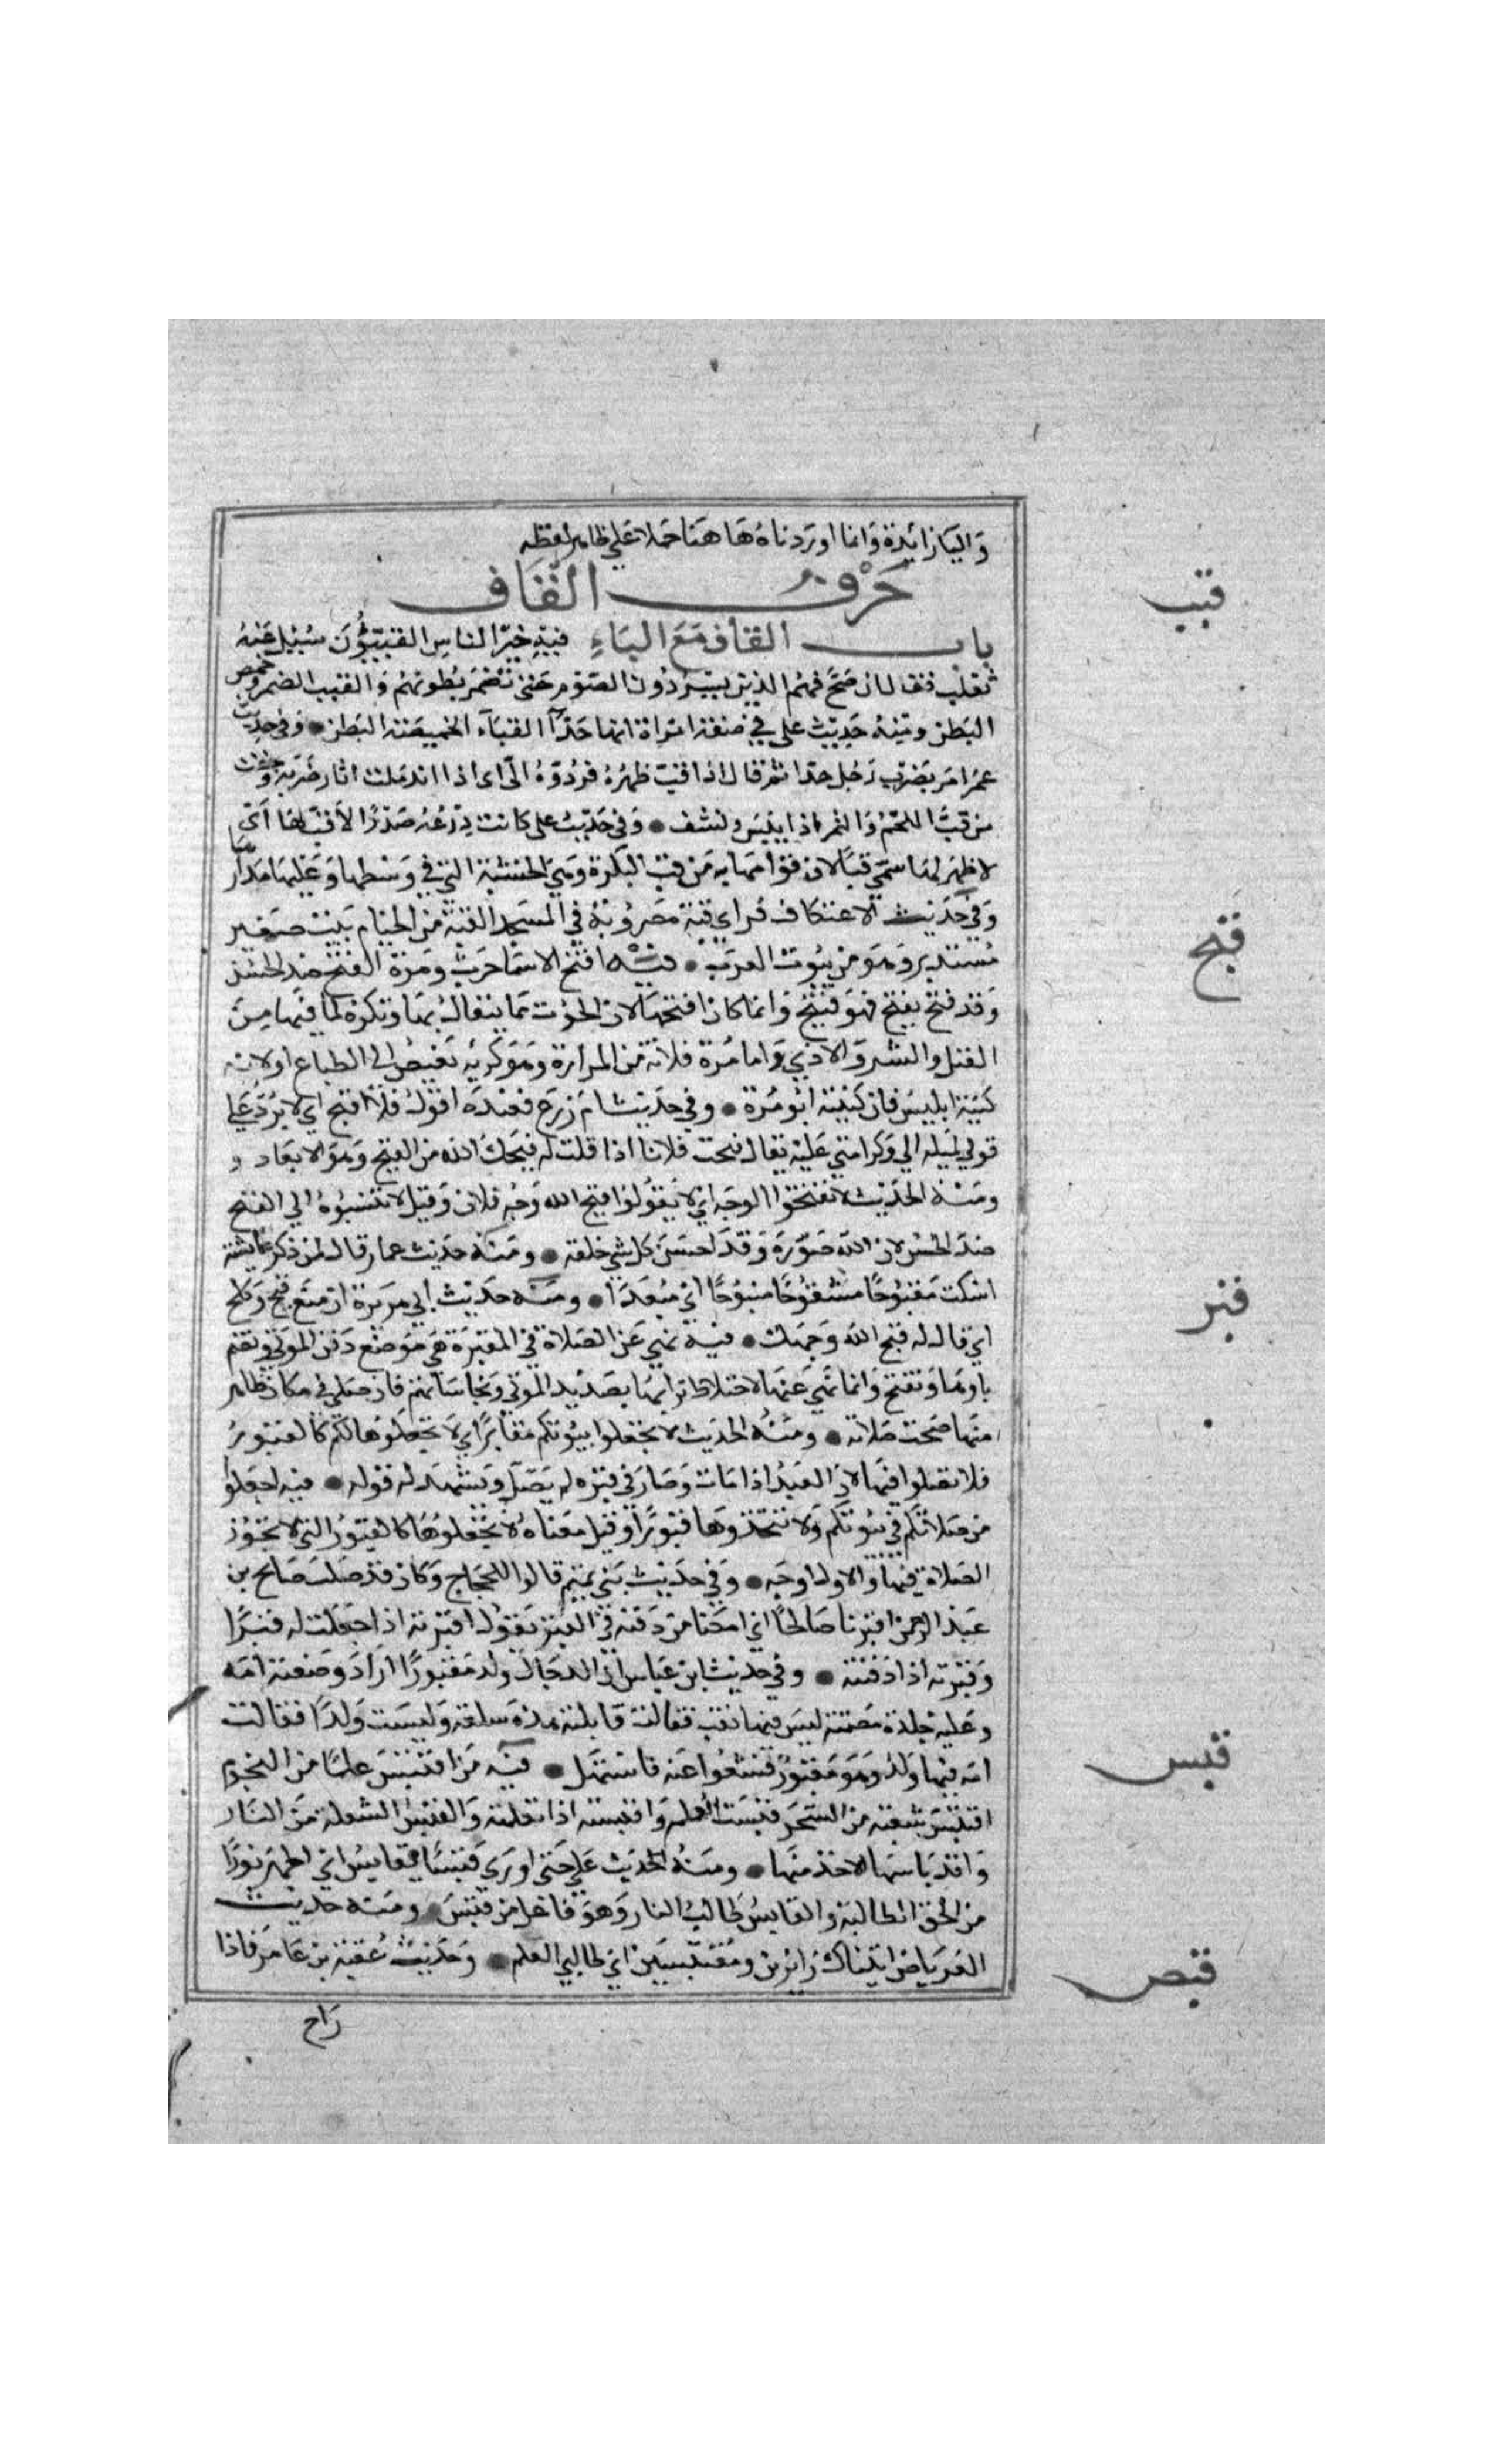 واليا زائدة وانما اوردناه هاهنا حملا علي ظاهر لفظه
حرف القاف
باب القاف مع الباء فيه خير الناس القبيون سئل عنه
ثعلب فقال ان صح فهم الذين يسردون الصوم حتي تضمر بطونهم والقبب الضمر وخمص
البطن ومنه حديث علي في صفة امراة انها جدآ القبآء الخميصة البطن وفي حديث
عمر امر بضرب رجل حدا ثم قال اذا قب ظهره فردوه الي اي اذا اندملت اثار ضربه وجفت
من قب اللحم والتمر اذا يبس ونشف وفي حديث علي كانت درعه صدرا لا قب لها اي
لا ظهر لها سمي قبا لان قوامها به من قب البكرة وهي الخشبة التي في وسطها وعليها مدارها
وفي حديث الاعتكاف فراي قبة مضروبة في المسجد القبة من الخيام بيت صغير
مستدير وهو من بيوت العرب فيه اقبح الاسما حرب ومرة القبح ضد الحسن
وقد قبح يقبح فهو قبيح وانما كان اقبحها لان الحرب مما يتفال بها وتكره لما فيها من
القتل والشر والاذي واما مرة فلانه من المرارة وهو كريه بغيض الي الطباع او لانه
كنية ابليس فان كنيته ابو مرة وفي حديث ام زرع فعنده اقول فلا اقبح اي لا يرد علي
قولي لميله الي وكرامتي عليه يقال قبحت فلانا اذا قلت له قبحك الله من القبح وهو الابعاد و
ومنه الحديث لا تقبحوا الوجه اي لا يقولوا قبح الله وجه فلان وقيل لا تنسبوه الي القبح
ضد الحسن لان الله صوره وقد احسن كل شي خلقه ومنه حديث عمار قال لمن ذكر عايشة
اسكت مقبوحا مشقوحا منبوحا اي مبعدا ومنه حديث ابي هريرة ان منع قبح وكلح
اي قال له قبح الله وجهك فيه نهي عن الصلاة في المقبرة هي موضع دفن الموتي وتضم
باوها وتفتح وانما نهي عنها لاختلاط ترابها بصديد الموتي ونجاساتهم فان صلي في مكان طاهر
منها صحت صلاته ومنه الحديث لا تجعلوا بيوتكم مقابر اي لا تجعلوها لكم كالقبور
فلا تصلوا فيها لان العبد اذا مات وصار في قبره لم يصل ويشهد له قوله فيه اجعلوا
من صلاتكم في بيوتكم ولا تتخذوها قبورا وقيل معناه لا تجعلوها كالقبور التي لا تجوز
الصلاة فيها والاول اوجه وفي حديث بني تميم قالوا للحجاج وكان قد صلب صالح بن
عبد الرحمن اقبرنا صالحا اي امكنا من دفنه في القبر تقول اقبرته اذا جعلت له قبرا
وقبرته اذا دفنته وفي حديث ابن عباس ان الدجال ولد مقبورا اراد وضعته امه
وعليه جلدة مصمتة ليس فيها نقب فقالت قابلته هذه سلعة وليست ولدا فقالت
امه فيها ولد وهو مقبور فشقوا عنه فاستهل فيه من اقتبس علما من النجوم
اقتبس شعبة من السحر قبست العلم واقتبسته اذا تعلمته والقبس الشعلة من النار
واقتباسها الاخذ منها ومنه الحديث علي حتي اوري قبسا لقابس اي اظهر نورا
من الحق لطالبه والقابس طالب النار وهو فاعل من قبس ومنه حديث
العرباض اتيناك زايرين ومقتبسين اي طالبي العلم وحديث عقبة بن عامر فاذا
راح
قبب
قبح
قبر
قبس
قبص